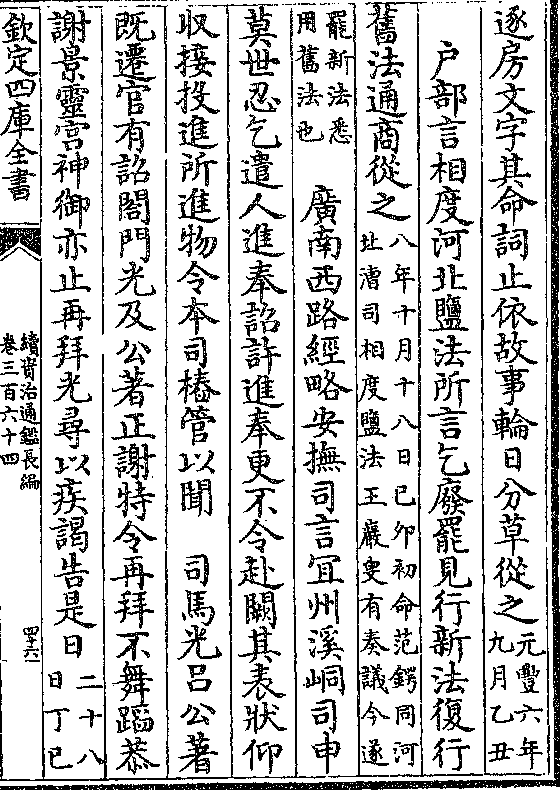 逐房文字其命詞止依故事輪日分草從之元豐六年九月乙丑
戶部言相度河北鹽法所言乞廢罷見行新法復行
舊法通商從之八年十月十八日已夘初命范鍔同河北漕司相度鹽法王巖叟有奏議今遂
罷新法悉用舊法也 廣南西路經略安撫司言宜州溪峒司申
莫世忍乞遣人進奉詔許進奉更不令赴闕其表狀仰
收接投進所進物令本司樁管以聞 司馬光呂公著
既遷官有詔閤門光及公著正謝特令再拜不舞蹈恭
謝景靈宮神御亦止再拜光尋以疾謁告是日二十八日丁巳
欽定四庫全書
續資治通鑑長編
卷三百六十四